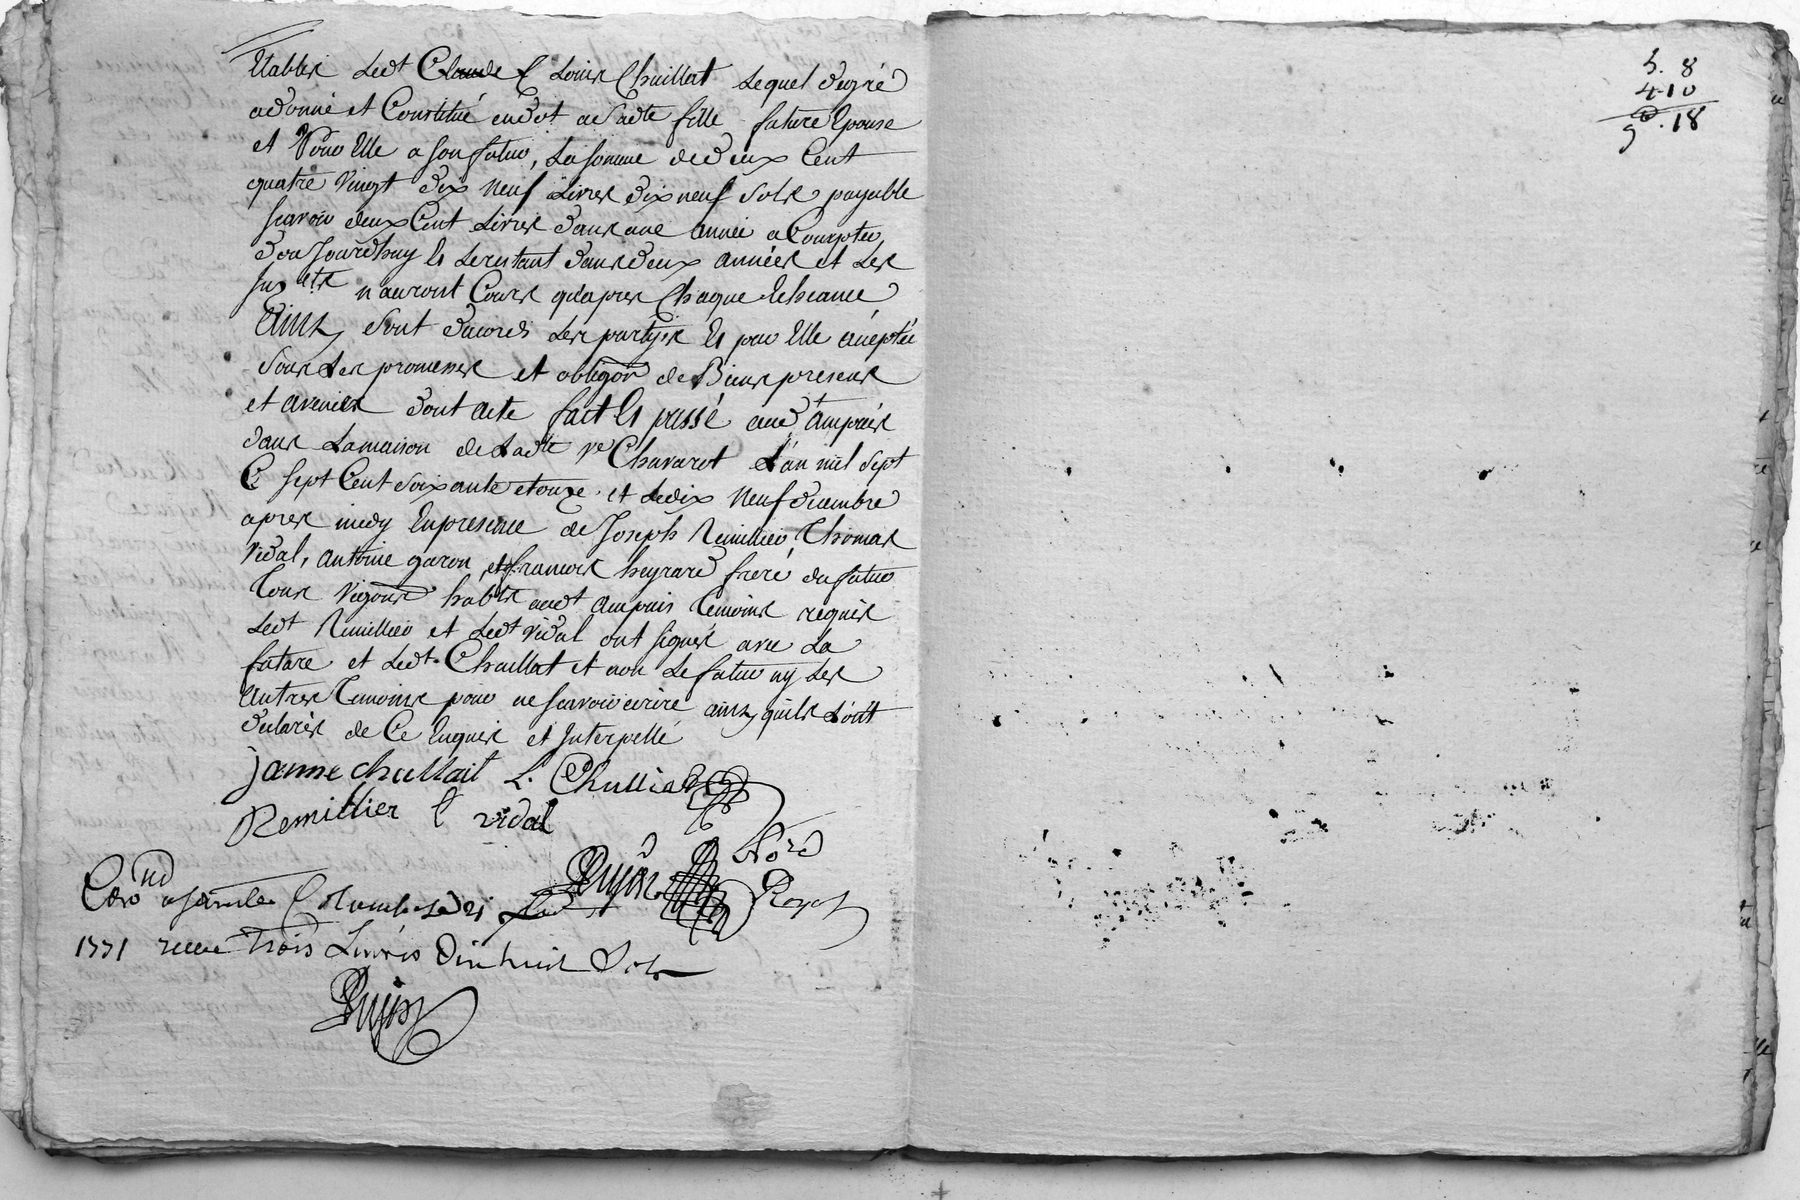 Etablis ledt Claude C Louis Chuillat lequel degré
a donné et Constitué en dot a ladte fille future Epouse
et Pour Elle a son futur, La somme de deux Cent
quatre vingt dix neuf Livres dix neuf sols payable
scavoir deux Cent Livres dans une année a Compter
dou Jourdhuy Es le restant dans deux années et Les
n auront Cours qu'apres Chaque Echeance
Ainsy sont dacords Les partyes Es pour Elle acéptée
sous Les promesses et obligõn de Biens presens
et avenirs dont acte fait Es passé audt Ampuis
dans La maison de Ladte ve Chavarot L'an mil sept
C sept Cent soixante et onze et Le dix neuf decembre
apres midy En presence de Joseph Remillier Thomas
Vidal, antoine garon et francois heyrard frere du futur
Tous Vignerons habts audt ampuis Temoins requis
Ledt Remillier et Ledt vidal ont signes avec La
future et Ledt Chuillat et non Le futur ny Les
autres Temoins pour ne scavoir ecrire ainsy quils L'ont
declarés de Ce Enquis et Interpellé
janne chullait L. Chulliat
Remillier t vidal
Pujon
1771 recu Trois Livres Dix huit Sols
Pujon
5. 8
4. 10
9. 18